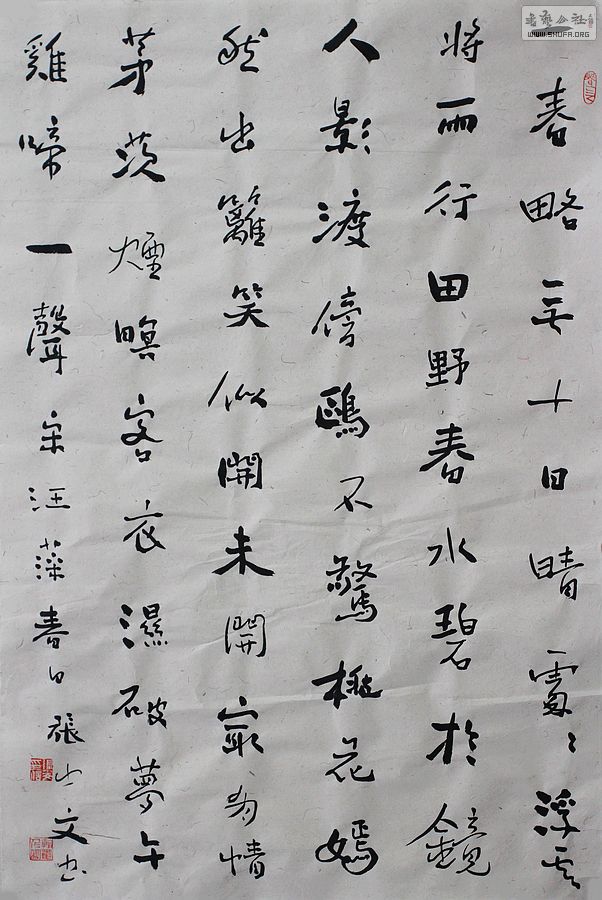 春略無十日晴處々浮雲
將雨行田野春水碧於鏡
人影渡傍鷗不驚桃花嫣
然出籬笑似開未開㝡有情
茅茨煙暝客衣濕破夢午
雞啼一聲宋汪藻春日張文書
书艺公社
WWW.SHUFA.ORG